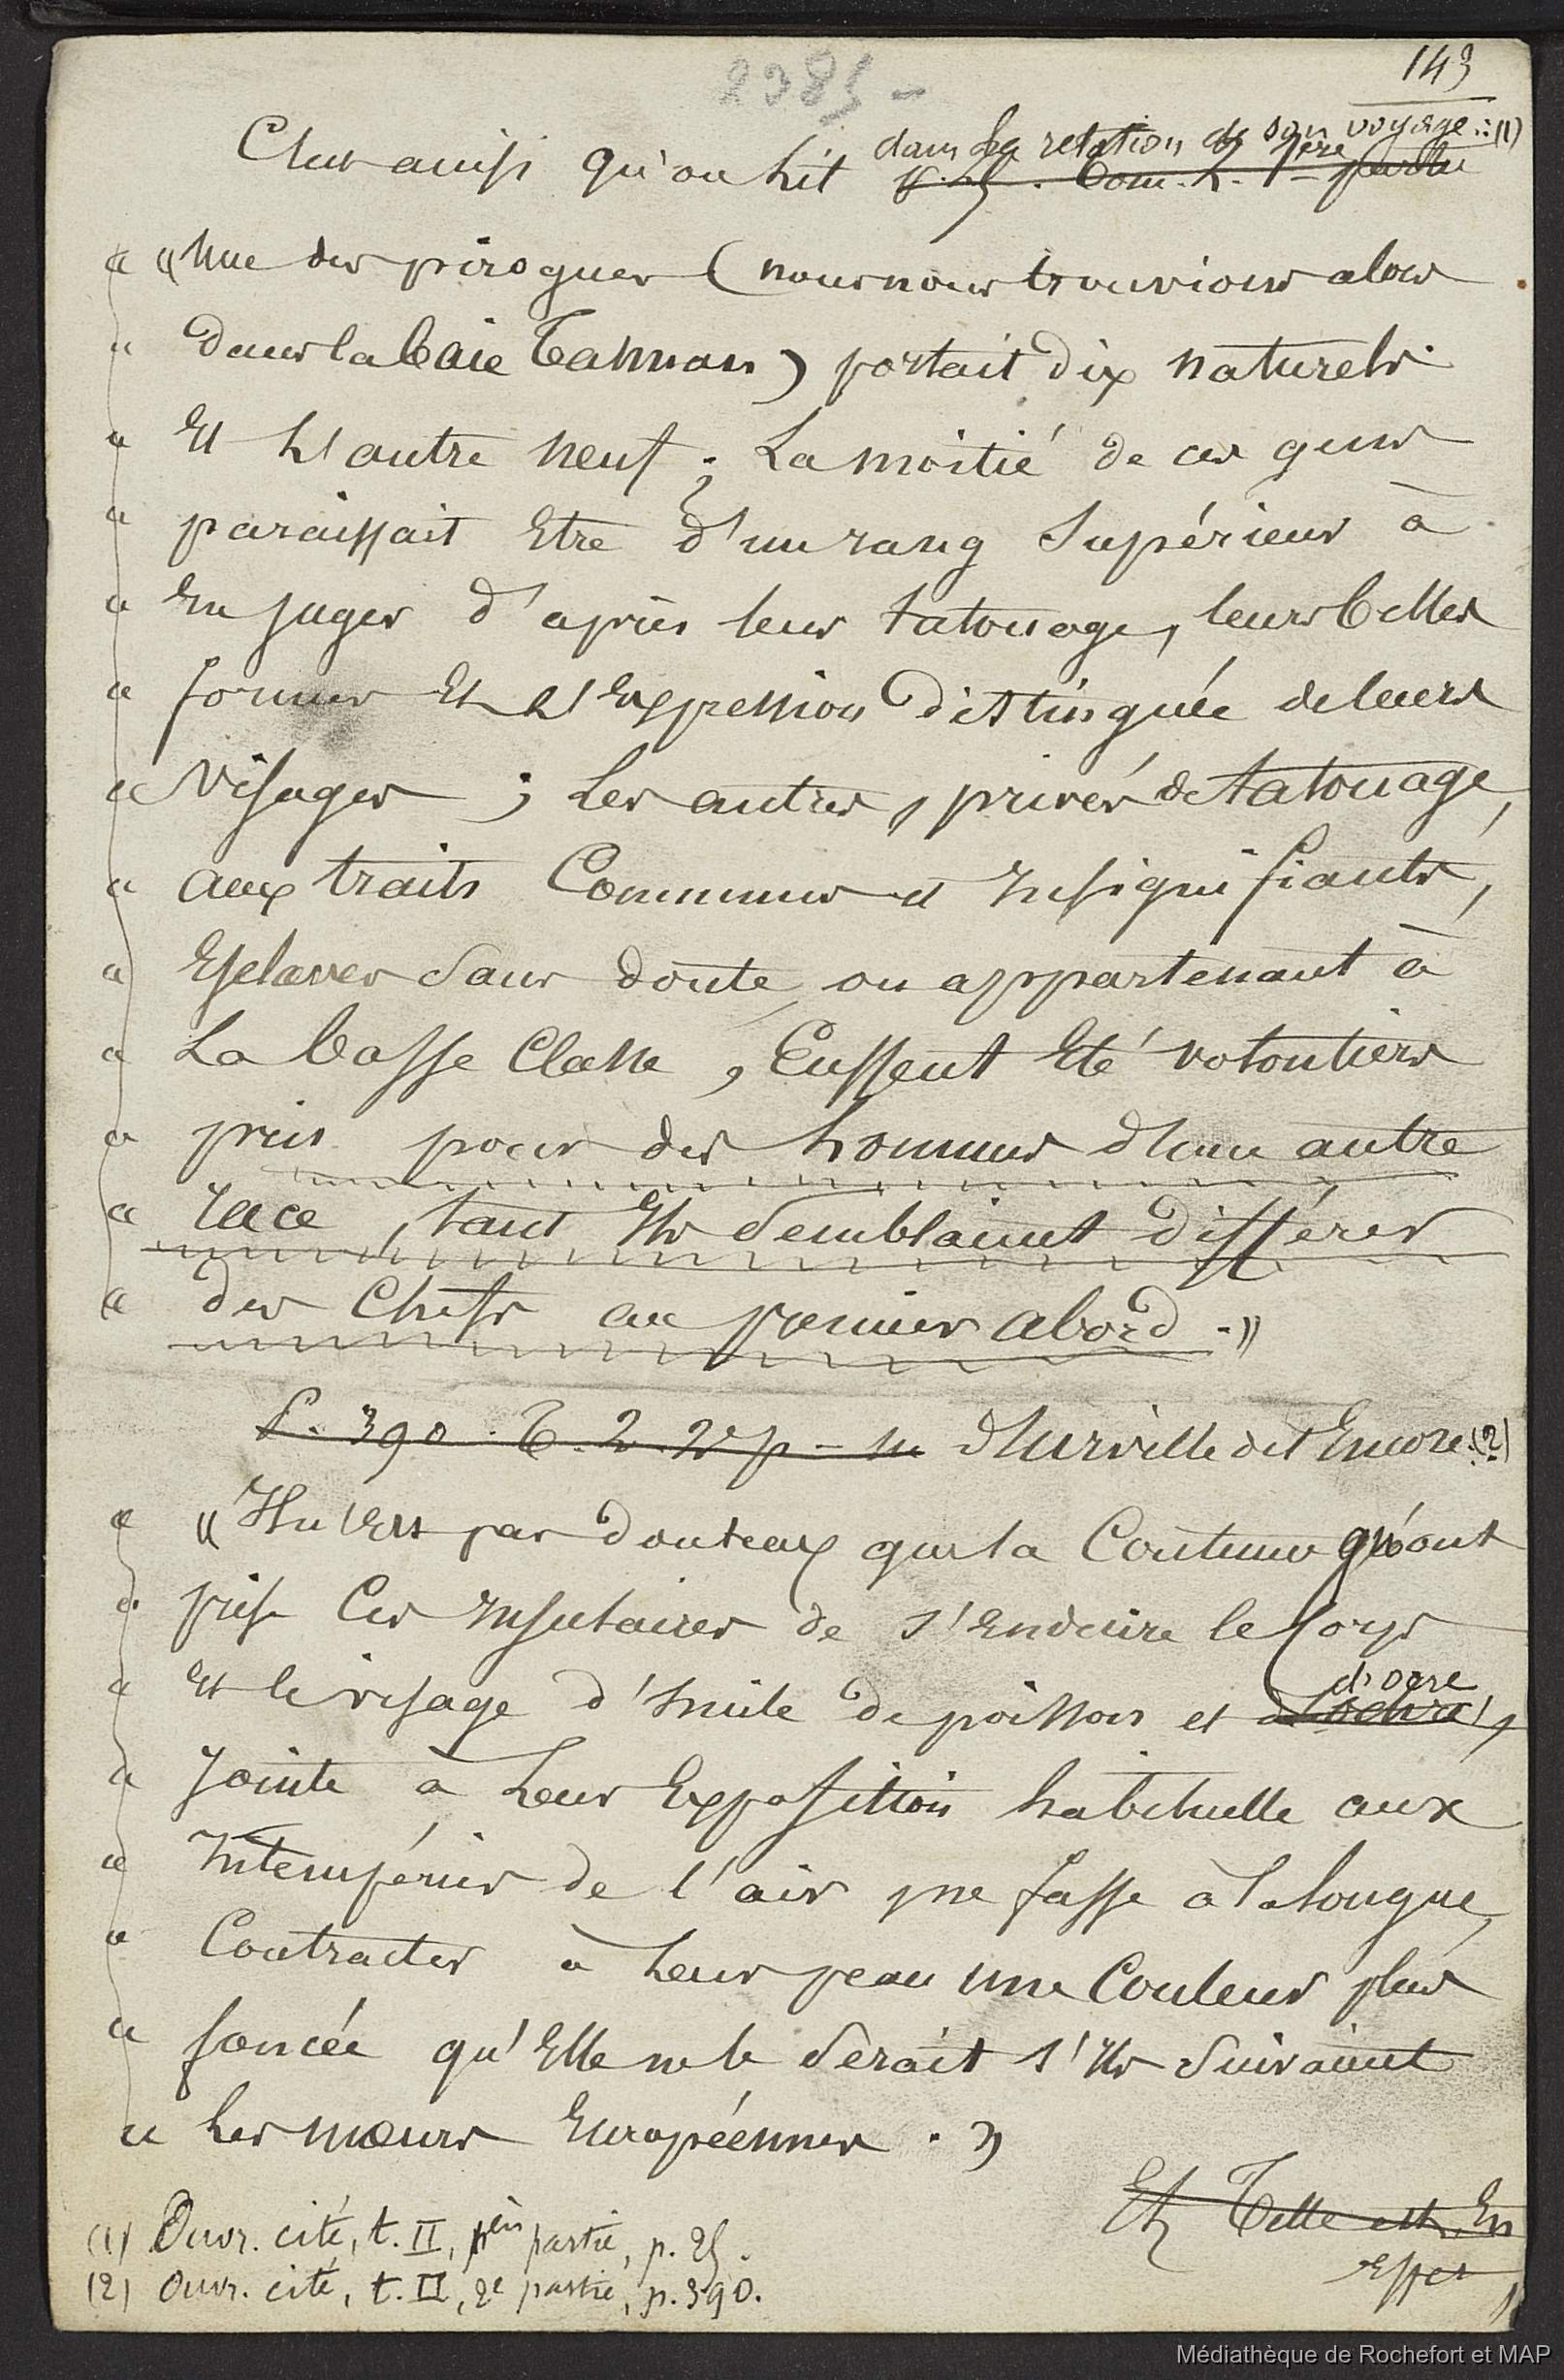 143
2385 -
C'est ainsi qu'on lit dans la relation de son voyage : (1)
p. 25. Tom. 2. 1ère partie
« « Une des pirogues (nous nous trouvions alors
« dans la baie Tasman) portait dix naturels
« Et l'autre neuf ; La moitié de ces gens
« paraissait Etre d'un rang Supérieur à
« En juger d'après leur tatouage, leurs belles
« formes Et l'Expression distinguée de leurs
« Visages ; Les autres, privés de tatouage,
« aux traits Communs et Insignifiants,
« Esclaves Sans doute, ou appartenant à
« La basse Classe, Eussent Eté volontiers
« pris pour des hommes d'une autre
« race, tant Ils Semblaient différer
« des Chefs au premier abord. »
P. 390. T. 2. 2e p - In d'Urville dit Encore : (2)
« « Il n'Est pas douteux que la Coutume qu'ont
« pris Ces Insulaires de s'Enduire le Corps
« Et le visage d'huile de poisson et d'ochre d'ocre,
« Jointe à Leur Exposition habituelle aux
« Intempéries de l'air, ne fasse à la longue,
« Contracter à Leur peau une Couleur plus
« foncée qu'Elle ne le Serait s'Ils Suivaient
« Les mœurs Européennes. »
Et Telle est, En
Effet,
(1) Ouvr. cité, t. II, 1ère partie, p. 25.
(2) Ouvr. cité, t. II, 2e partie, p. 390.
Médiathèque de Rochefort et MAP